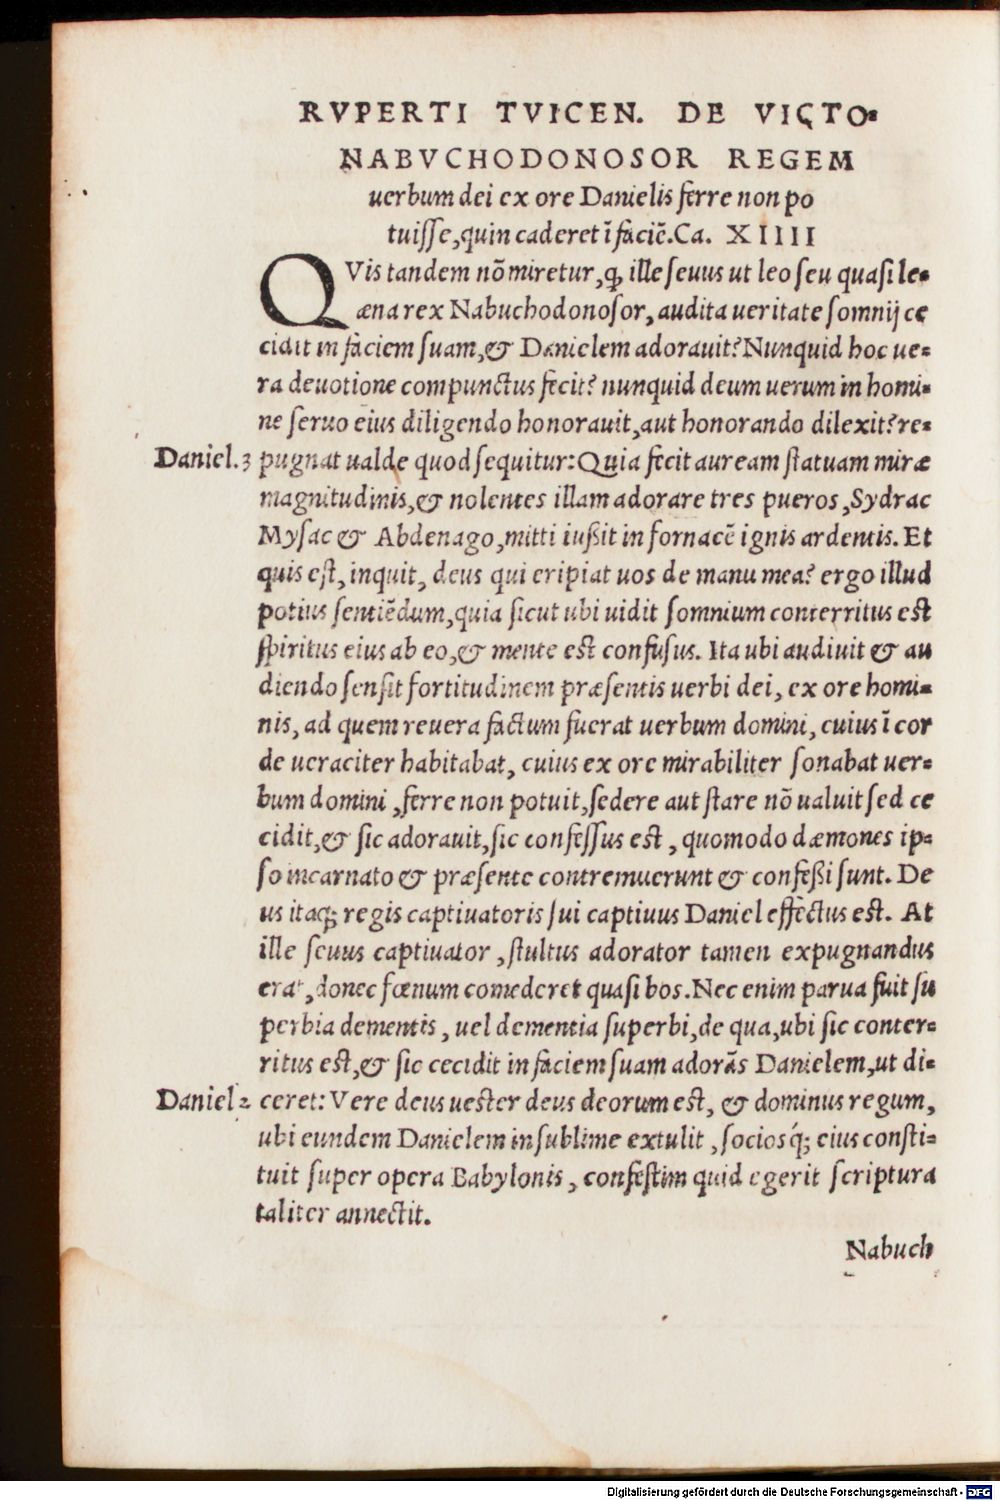 RVPERTI TVICEN. DE VICTO-
NABVCHODONOSOR REGEM
uerbum dei ex ore Danielis ferre non po
tuisse, quin caderet ĩ faciẽ. Ca. XIIII
QVis tandem nõ miretur, ꝙ ille seuus ut leo seu quasi le-
æna rex Nabuchodonosor, audita ueritate somnij ce
cidit in faciem suam, & Danielem adorauit? Nunquid hoc ue-
ra deuotione compunctus fecit? nunquid deum uerum in homi-
ne seruo eius diligendo honorauit, aut honorando dilexit? re-
Daniel. 3 pugnat ualde quod sequitur: Quia fecit auream statuam miræ
magnitudinis, & nolentes illam adorare tres pueros, Sydrac
Mysac & Abdenago, mitti iußit in fornacẽ ignis ardentis. Et
quis est, inquit, deus qui eripiat uos de manu mea? ergo illud
potius sentiẽdum, quia sicut ubi uidit somnium conterritus est
spiritus eius ab eo, & mente est confusus. Ita ubi audiuit & au
diendo sensit fortitudinem præsentis uerbi dei, ex ore homi-
nis, ad quem reuera factum fuerat uerbum domini, cuius ĩ cor
de ueraciter habitabat, cuius ex ore mirabiliter sonabat uer-
bum domini, ferre non potuit, sedere aut stare nõ ualuit sed ce
cidit, & sic adorauit, sic confessus est, quomodo dæmones ip-
so incarnato & præsente contremuerunt & confeßi sunt. De
us itaq; regis captiuatoris sui captiuus Daniel effectus est. At
ille seuus captiuator, stultus adorator tamen expugnandus
erat, donec fœnum comederet quasi bos. Nec enim parua fuit su
perbia dementis, uel dementia superbi, de qua, ubi sic conter-
ritus est, & sic cecidit in faciem suam adorãs Danielem, ut di-
Daniel 2 ceret: Vere deus uester deus deorum est, & dominus regum,
ubi eundem Danielem in sublime extulit, socios q́; eius consti-
tuit super opera Babylonis, confestim quid egerit scriptura
taliter annectit.
Nabuch
Digitalisierung gefördert durch die Deutsche Forschungsgemeinschaft - DFG